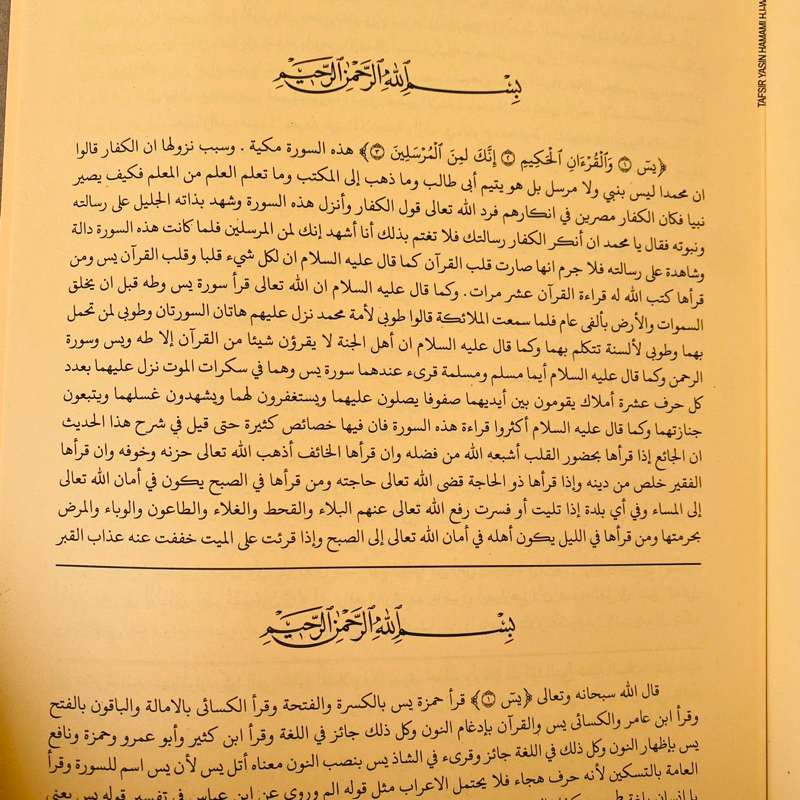 TAFSIR YASIN HAMAMI H.I.W
بِسْمِ اللَّهِ الرَّحْمَٰنِ الرَّحِيمِ
﴿يسٓ ۝١ وَالْقُرْءَانِ الْحَكِيمِ ۝٢ إِنَّكَ لَمِنَ الْمُرْسَلِينَ ۝٣﴾ هذه السورة مكية . وسبب نزولها ان الكفار قالوا
ان محمدا ليس بنبي ولا مرسل بل هو يتيم أبى طالب وما ذهب إلى المكتب وما تعلم العلم من المعلم فكيف يصير
نبيا فكان الكفار مصرين في انكارهم فرد الله تعالى قول الكفار وأنزل هذه السورة وشهد بذاته الجليل على رسالته
ونبوته فقال يا محمد ان أنكر الكفار رسالتك فلا تغتم بذلك أنا أشهد إنك لمن المرسلين فلما كانت هذه السورة دالة
وشاهدة على رسالته فلا جرم انها صارت قلب القرآن كما قال عليه السلام ان لكل شيء قلبا وقلب القرآن يس ومن
قرأها كتب الله له قراءة القرآن عشر مرات . وكما قال عليه السلام ان الله تعالى قرأ سورة يس وطه قبل ان يخلق
السموات والأرض بألفى عام فلما سمعت الملائكة قالوا طوبى لأمة محمد نزل عليهم هاتان السورتان وطوبى لمن تحمل
بهما وطوبى لألسنة تتكلم بهما وكما قال عليه السلام ان أهل الجنة لا يقرؤن شيئا من القرآن إلا طه ويس وسورة
الرحمن وكما قال عليه السلام أيما مسلم ومسلمة قرىء عندهما سورة يس وهما في سكرات الموت نزل عليهما بعدد
كل حرف عشرة أملاك يقومون بين أيديهما صفوفا يصلون عليهما ويستغفرون لهما ويشهدون غسلهما ويتبعون
جنازتهما وكما قال عليه السلام أكثروا قراءة هذه السورة فان فيها خصائص كثيرة حتى قيل في شرح هذا الحديث
ان الجائع إذا قرأها بحضور القلب أشبعه الله من فضله وان قرأها الخائف أذهب الله تعالى حزنه وخوفه وان قرأها
الفقير خلص من دينه وإذا قرأها ذو الحاجة قضى الله تعالى حاجته ومن قرأها في الصبح يكون في أمان الله تعالى
إلى المساء وفي أي بلدة إذا تليت أو فسرت رفع الله تعالى عنهم البلاء والقحط والغلاء والطاعون والوباء والمرض
بحرمتها ومن قرأها في الليل يكون أهله في أمان الله تعالى إلى الصبح وإذا قرئت على الميت خففت عنه عذاب القبر
بِسْمِ اللَّهِ الرَّحْمَٰنِ الرَّحِيمِ
قال الله سبحانه وتعالى ﴿يسٓ ۝١﴾ قرأ حمزة يس بالكسرة والفتحة وقرأ الكسائى بالامالة والباقون بالفتح
وقرأ ابن عامر والكسائى يس والقرآن بإدغام النون وكل ذلك جائز في اللغة وقرأ ابن كثير وأبو عمرو وحمزة ونافع
يس بإظهار النون وكل ذلك في اللغة جائز وقرىء في الشاذ يس بنصب النون معناه أتل يس لأن يس اسم للسورة وقرأ
العامة بالتسكين لأنه حرف هجاء فلا يحتمل الاعراب مثل قوله الم وروي عن ابن عباس في تفسير قوله يس يعني